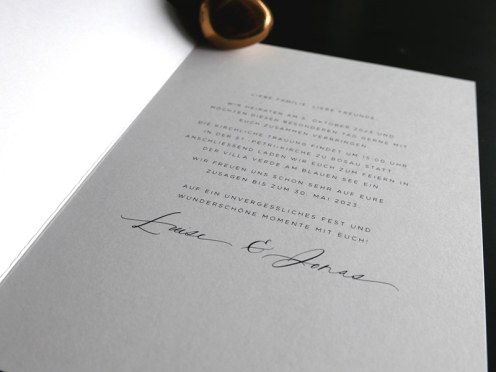 LIEBE FAMILIE, LIEBE FREUNDE,
WIR HEIRATEN AM 6. OKTOBER 2023 UND
MÖCHTEN DIESEN BESONDEREN TAG GERNE MIT
EUCH ZUSAMMEN VERBRINGEN.
DIE KIRCHLICHE TRAUUNG FINDET UM 15:00 UHR
IN DER ST.-PETRI-KIRCHE ZU BOSAU STATT.
ANSCHLIESSEND LADEN WIR EUCH ZUM FEIERN IN
DER VILLA VERDE AM BLAUEN SEE EIN.
WIR FREUEN UNS SCHON SEHR AUF EURE
ZUSAGEN BIS ZUM 30. MAI 2023.
AUF EIN UNVERGESSLICHES FEST UND
WUNDERSCHÖNE MOMENTE MIT EUCH!
Luise & Jonas